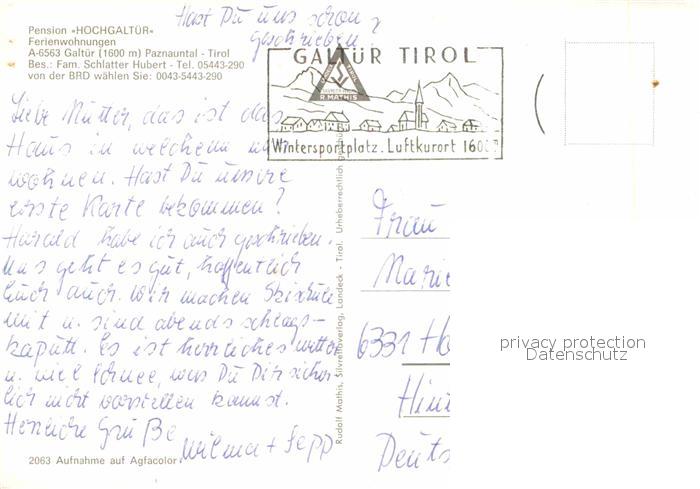 Hast Du uns schon
geschrieben?
Pension »HOCHGALTÜR«
Ferienwohnungen
A-6563 Galtür (1600 m) Paznauntal - Tirol
Bes.: Fam. Schlatter Hubert - Tel. 05443-290
von der BRD wählen Sie: 0043-5443-290
GALTÜR TIROL
R. MATHIS
Wintersportplatz. Luftkurort 160
Liebe Mutter, das ist das
Haus in welchem wir
wohnen. Hast Du unsere
erste Karte bekommen?
Harald habe ich auch geschrieben.
Uns geht es gut, hoffentlich
Euch auch. Wir machen Skischule
mit u. sind abends schlags-
kaputt. Es ist herrliches Wetter
u. viel Schnee, was Du Dir sicher-
lich nicht vorstellen kannst.
Herzliche Grüße
Wilma + Sepp
2063 Aufnahme auf Agfacolor
Rudolf Mathis, Silvrettaverlag, Landeck - Tirol. Urheberrechtlich
Frau
Marie
6331 Ho
Deuts
privacy protection
Datenschutz